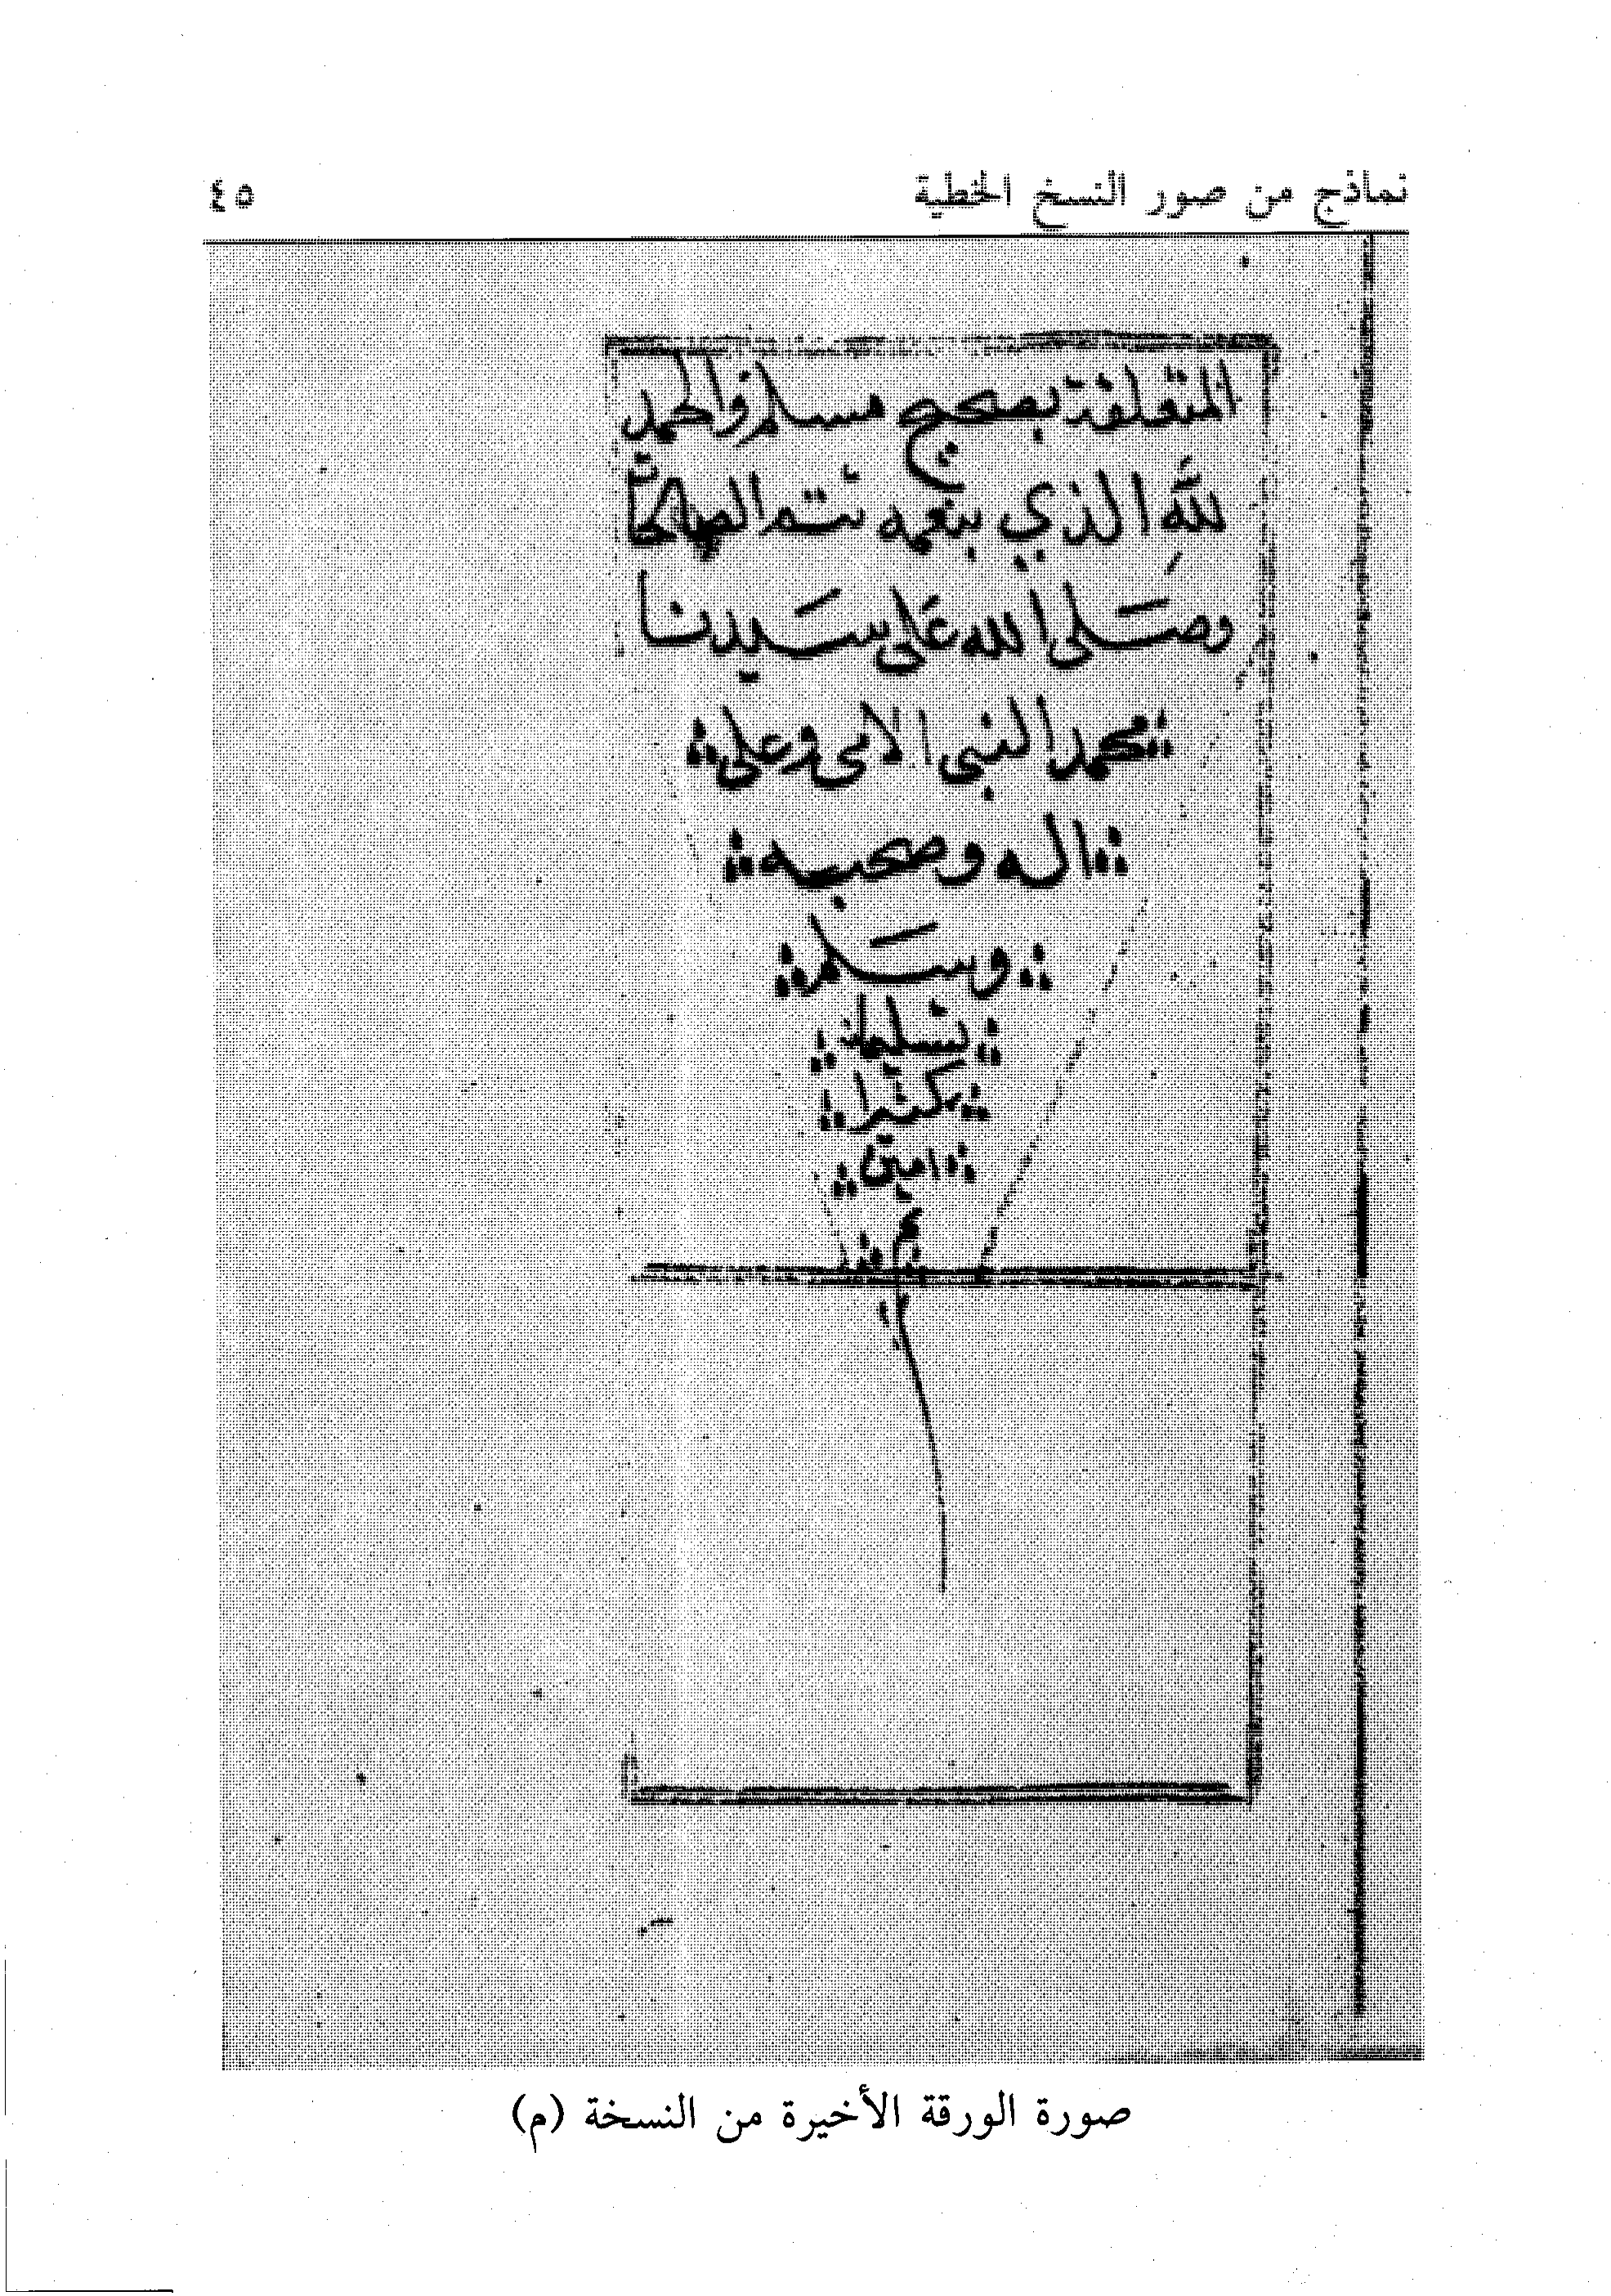 نماذج من صور النسخ الخطية ٤٥
المتعلقة بصحيح مسلم والحمد
لله الذي بنعمه تتم الصالحات
وصَلى الله عَلى سَيدنا
محمد النبي الامي وعلى
اله وصحبه
وسَلم
تسليما
كثيرا
امين
صورة الورقة الأخيرة من النسخة (م)